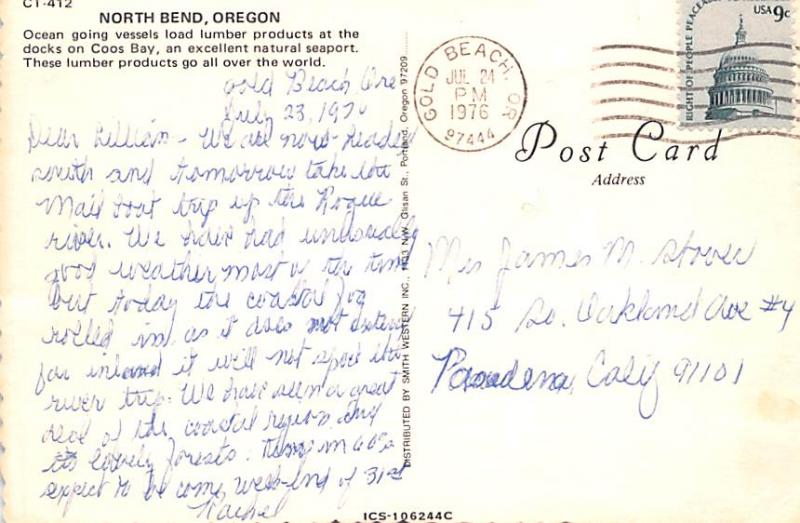 CT-412
NORTH BEND, OREGON
Ocean going vessels load lumber products at the
docks on Coos Bay, an excellent natural seaport.
These lumber products go all over the world.
Gold Beach Ore
July 23, 197
Dear Lillian - We are now headed
south and tomorrow take the
Mail boat trip up the Rogue
river. We have had unusually
good weather most of the time
but today the coastal fog
rolled in. as it does not extend
far inland it will not spoil the
river trip. We have seen a great
deal of the coastal region and
its lovely forests. in 60's
expect to be home week-end of 31st
Rachel
DISTRIBUTED BY SMITH WESTERN INC., N.W. Glisan St., Portland, Oregon 97209
GOLD BEACH, OR
JUL 24
PM
1976
97444
RIGHT OF PEOPLE PEACEABLY
USA 9c
Post Card
Address
Mrs James M. Stover
415 So. Oakland Ave #4
Pasadena, Calif 91101
ICS-106244C